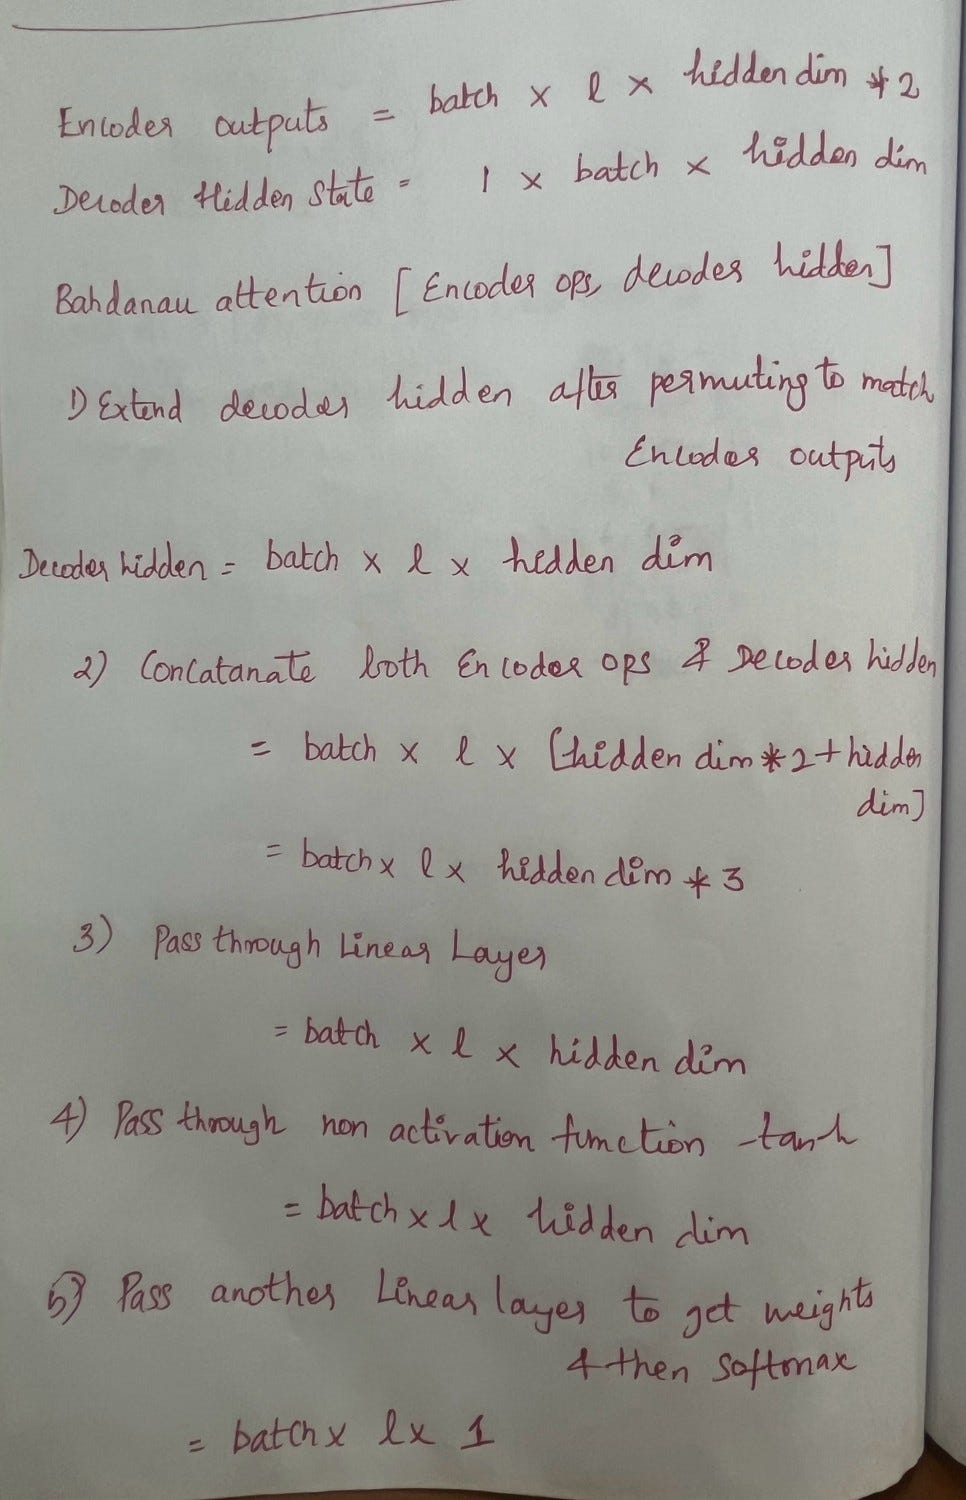 Encoder outputs = batch x l x hidden dim * 2
Decoder Hidden State = 1 x batch x hidden dim
Bahdanau attention [Encoder ops, decoder hidden]
1) Extend decoder hidden after permuting to match
Encoder outputs
Decoder hidden = batch x l x hidden dim
2) Concatanate both Encoder ops & Decoder hidden
= batch x l x [hidden dim * 2 + hidden
dim]
= batch x l x hidden dim * 3
3) Pass through Linear Layer
= batch x l x hidden dim
4) Pass through non activation function -tanh
= batch x l x hidden dim
5) Pass another Linear layer to get weights
& then softmax
= batch x l x 1